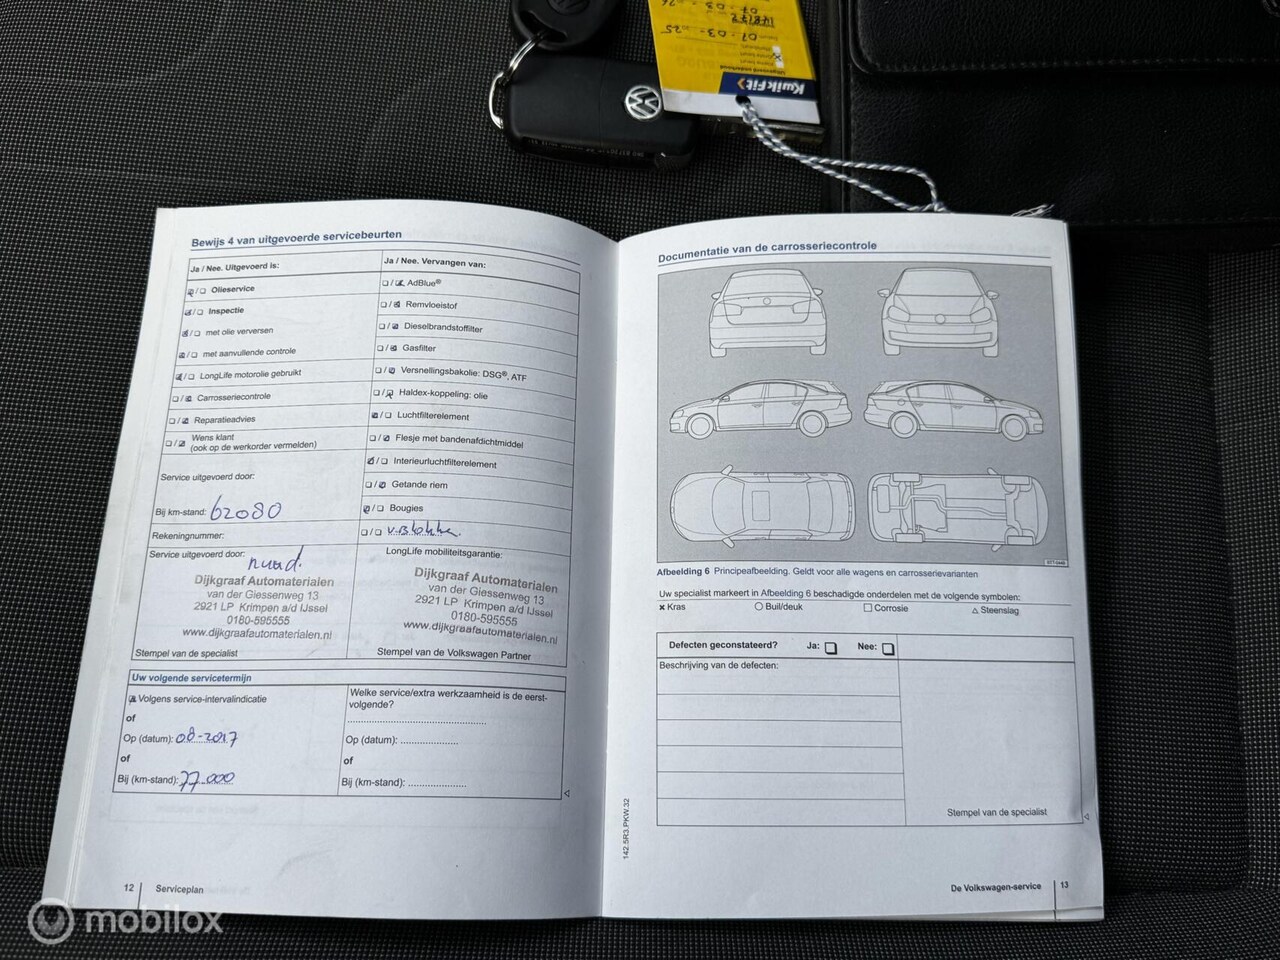 KwikFit
Uitgevoerd onderhoud
07-03-25
148172
07-03-26
Bewijs 4 van uitgevoerde servicebeurten
Ja / Nee. Uitgevoerd is:
Olieservice
Inspectie
met olie verversen
met aanvullende controle
LongLife motorolie gebruikt
Carrosseriecontrole
Reparatieadvies
Wens klant
(ook op de werkorder vermelden)
Service uitgevoerd door:
Bij km-stand: 62080
Rekeningnummer:
Service uitgevoerd door:
Dijkgraaf Automaterialen
van der Giessenweg 13
2921 LP Krimpen a/d IJssel
0180-595555
www.dijkgraafautomaterialen.nl
Stempel van de specialist
Ja / Nee. Vervangen van:
AdBlue®
Remvloeistof
Dieselbrandstoffilter
Gasfilter
Versnellingsbakolie: DSG®, ATF
Haldex-koppeling: olie
Luchtfilterelement
Flesje met bandenafdichtmiddel
Interieurluchtfilterelement
Getande riem
Bougies
LongLife mobiliteitsgarantie:
Dijkgraaf Automaterialen
van der Giessenweg 13
2921 LP Krimpen a/d IJssel
0180-595555
www.dijkgraafautomaterialen.nl
Stempel van de Volkswagen Partner
Uw volgende servicetermijn
Volgens service-intervalindicatie
of
Op (datum): 08-2017
of
Bij (km-stand): 77.000
Welke service/extra werkzaamheid is de eerst-
volgende?
Op (datum):
of
Bij (km-stand):
12 Serviceplan
142.5R3.PKW.32
Documentatie van de carrosseriecontrole
Afbeelding 6 Principeafbeelding. Geldt voor alle wagens en carrosserievarianten
Uw specialist markeert in Afbeelding 6 beschadigde onderdelen met de volgende symbolen:
× Kras ○ Buil/deuk □ Corrosie △ Steenslag
Defecten geconstateerd? Ja: Nee:
Beschrijving van de defecten:
Stempel van de specialist
De Volkswagen-service 13
mobilox